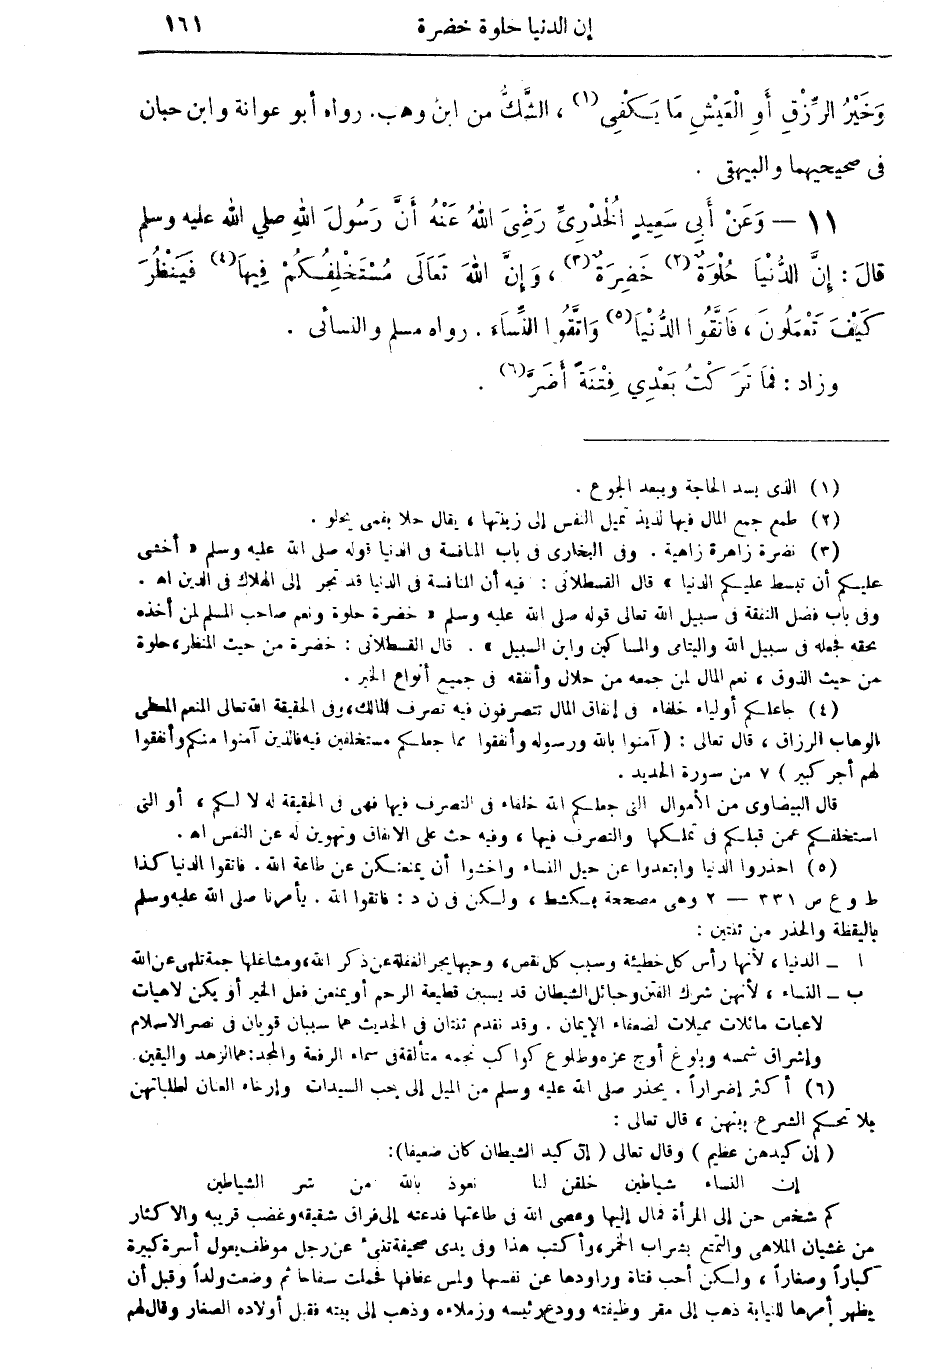 إن الدنيا حلوة خضرة ١٦١
وَخَيْرُ الرِّزْقِ أَوِ الْعَيْشِ مَا يَكْفِى(١) ، الشَّكُّ من ابن وهب. رواه أبو عوانة وابن حبان
فى صحيحيهما والبيهقى .
١١ — وَعَنْ أَبِي سَعِيدٍ الْخُدْرِىِّ رَضِىَ اللهُ عَنْهُ أَنَّ رَسُولَ اللهِ صلي الله عليه وسلم
قالَ : إِنَّ الدُّنْيَا حُلْوَةٌ(٢) خَضِرَةٌ(٣) ، وَإِنَّ اللهَ تَعَالَى مُسْتَخْلِفُكُمْ فِيهَا(٤) فَيَنْظُرَ
كَيْفَ تَعْمَلُونَ ، فَاتَّقُوا الدُّنْيَا(٥) وَاتَّقُوا النِّسَاءَ . رواه مسلم والنسائى .
وزاد : فَمَا تَرَكْتُ بَعْدِي فِتْنَةً أَضَرَّ(٦) .
(١) الذى يسد الحاجة ويبعد الجوع .
(٢) طمع جمع المال فيها لذيذ تميل النفس إلى زينتها ، يقال حلا بفمى يحلو .
(٣) نضرة زاهرة زاهية . وفى البخارى فى باب المنافسة فى الدنيا قوله صلى الله عليه وسلم « أخشى
عليكم أن تبسط عليكم الدنيا » قال القسطلانى : فيه أن المنافسة فى الدنيا قد تجر إلى الهلاك فى الدين اهـ .
وفى باب فضل النفقة فى سبيل الله تعالى قوله صلى الله عليه وسلم « خضرة حلوة ونعم صاحب المسلم لمن أخذه
بحقه فجعله فى سبيل الله واليتامى والمساكين وابن السبيل » . قال القسطلانى : خضرة من حيث المنظر، حلوة
من حيث الذوق ، نعم المال لمن جمعه من حلال وأنفقه فى جميع أنواع الخير .
(٤) جاعلكم أولياء خلفاء فى إنفاق المال تتصرفون فيه تصرف المالك، وفى الحقيقة الله تعالى المنعم المعطى
الوهاب الرزاق ، قال تعالى : ( آمنوا بالله ورسوله وأنفقوا مما جعلكم مستخلفين فيه فالذين آمنوا منكم وأنفقوا
لهم أجر كبير ) ٧ من سورة الحديد .
قال البيضاوى من الأموال التى جعلكم الله خلفاء فى التصرف فيها فهى فى الحقيقة له لا لكم ، أو التى
استخلفكم عمن قبلكم فى تملكها والتصرف فيها ، وفيه حث على الانفاق وتهوين له عن النفس اهـ .
(٥) احذروا الدنيا وابتعدوا عن حيل النساء واخشوا أن يمنعنكن عن طاعة الله . فاتقوا الدنيا كذا
ط و ع ص ٣٣١ — ٢ وهى مصححة بكشط ، ولكن فى ن د : فاتقوا الله . يأمرنا صلى الله عليه وسلم
باليقظة والحذر من ثنتين :
ا ــ الدنيا ، لأنها رأس كل خطيئة وسبب كل نقص، وحبها يجر الغفلة عن ذكر الله، ومشاغلها جمة تلهى عن الله
ب ــ النساء ، لأنهن شرك الفتن وحبائل الشيطان قد يسببن قطيعة الرحم أو يمنعن فعل الخير أو يكن لاهيات
لاعبات مائلات مميلات لضعفاء الإيمان . وقد تقدم ثنتان فى الحديث هما سببان قويان فى نصر الاسلام
وإشراق شمسه وبلوغ أوج عزه وطلوع كواكب نجمه متألقة فى سماء الرفعة والمجد: هما الزهد واليقين.
(٦) أكثر إضراراً . يحذر صلى الله عليه وسلم من الميل إلى حب السيدات وإرخاء العنان لطلباتهن
بلا تحكيم الشرع بينهن ، قال تعالى :
( إن كيدهن عظيم ) وقال تعالى ( إن كيد الشيطان كان ضعيفا):
إن النساء شياطين خلقن لنا نعوذ بالله من شر الشياطين
كم شخص حن إلى المرأة فمال إليها وعصى الله فى طاعتها فدعته إلى فراق شقيقه وغضب قريبه والاكثار
من غشيان الملاهى والتمتع بشراب الخمر، وأكتب هذا وفى يدى صحيفة تنبئ عن رجل موظف يعول أسرة كبيرة
كباراً وصغاراً ، ولكن أحب فتاة وراودها عن نفسها ولمس عفافها فحملت سفاحا ثم وضعت ولداً وقبل أن
يظهر أمرها للنيابة ذهب إلى مقر وظيفته وودع رئيسه وزملاءه وذهب إلى بيته فقبل أولاده الصغار وقال لهم